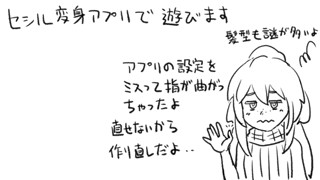 セシル変身アプリで遊びます
髪型も謎が多いよ
アプリの設定を
ミスって指が曲がっ
ちゃったよ
直せないから
作り直しだよ‥